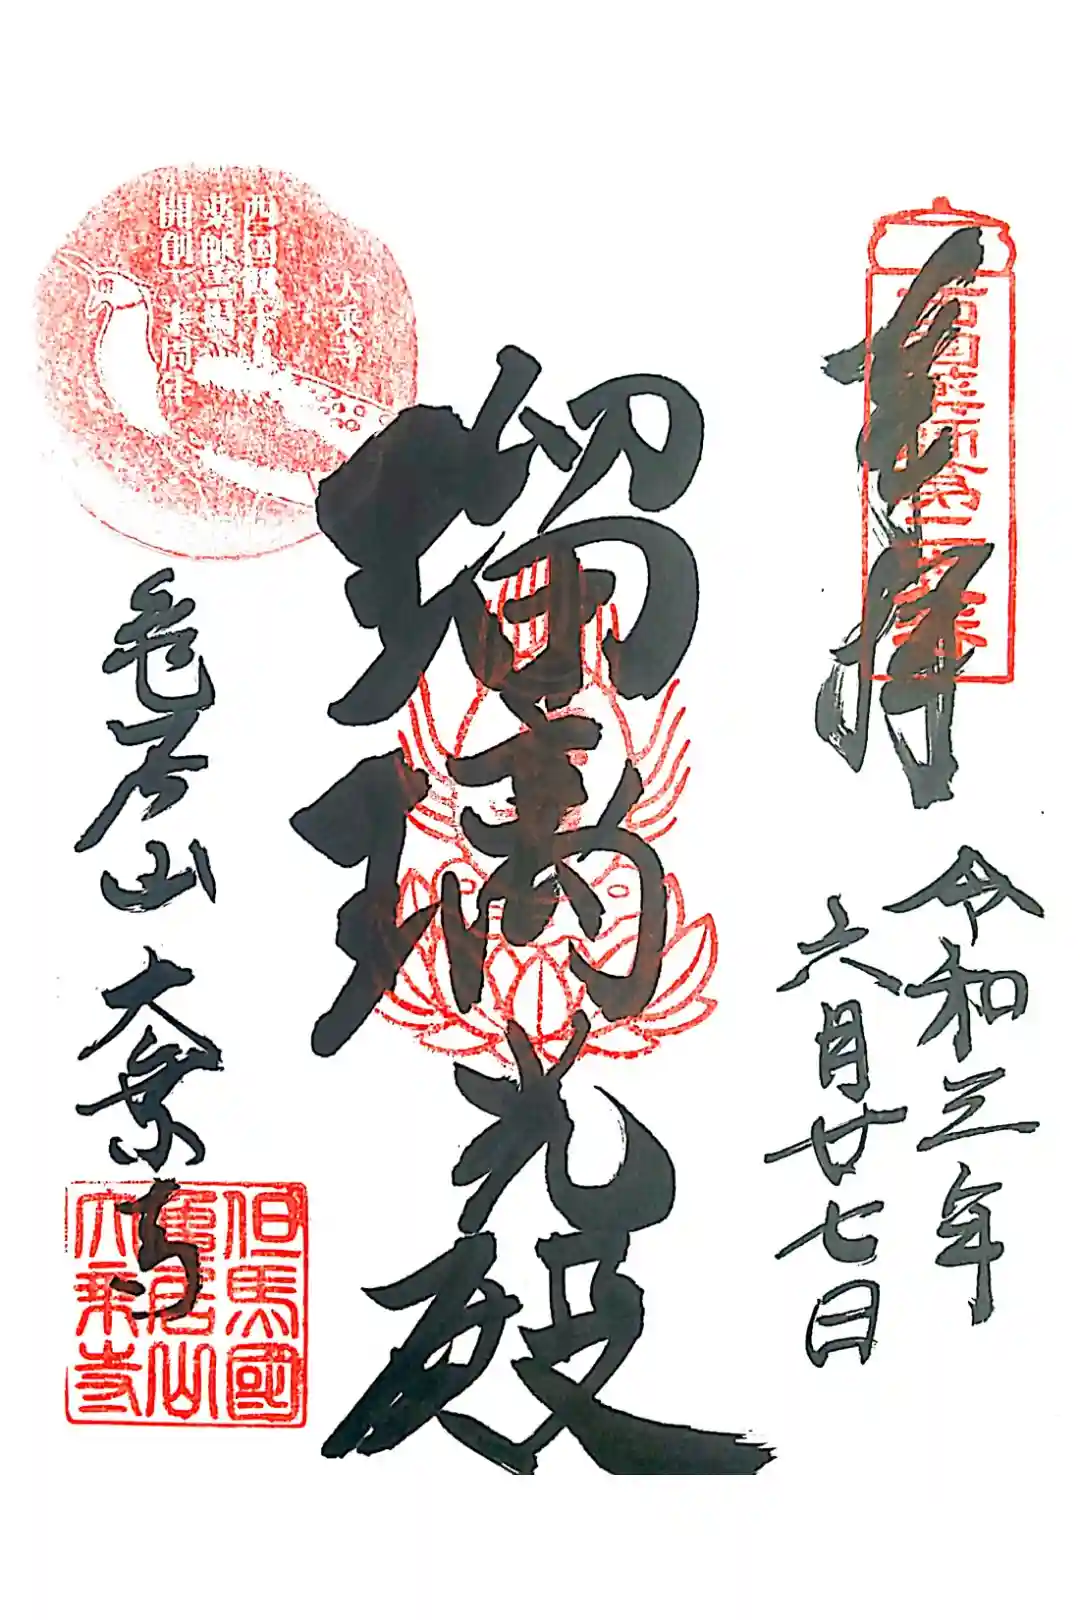 奉拝
西国薬師第二十八番
令和三年
六月廿七日
瑠璃光殿
大乗寺
西国四十九
薬師霊場
開創 周年
亀居山 大乗寺
但馬國
亀居山
大乗寺